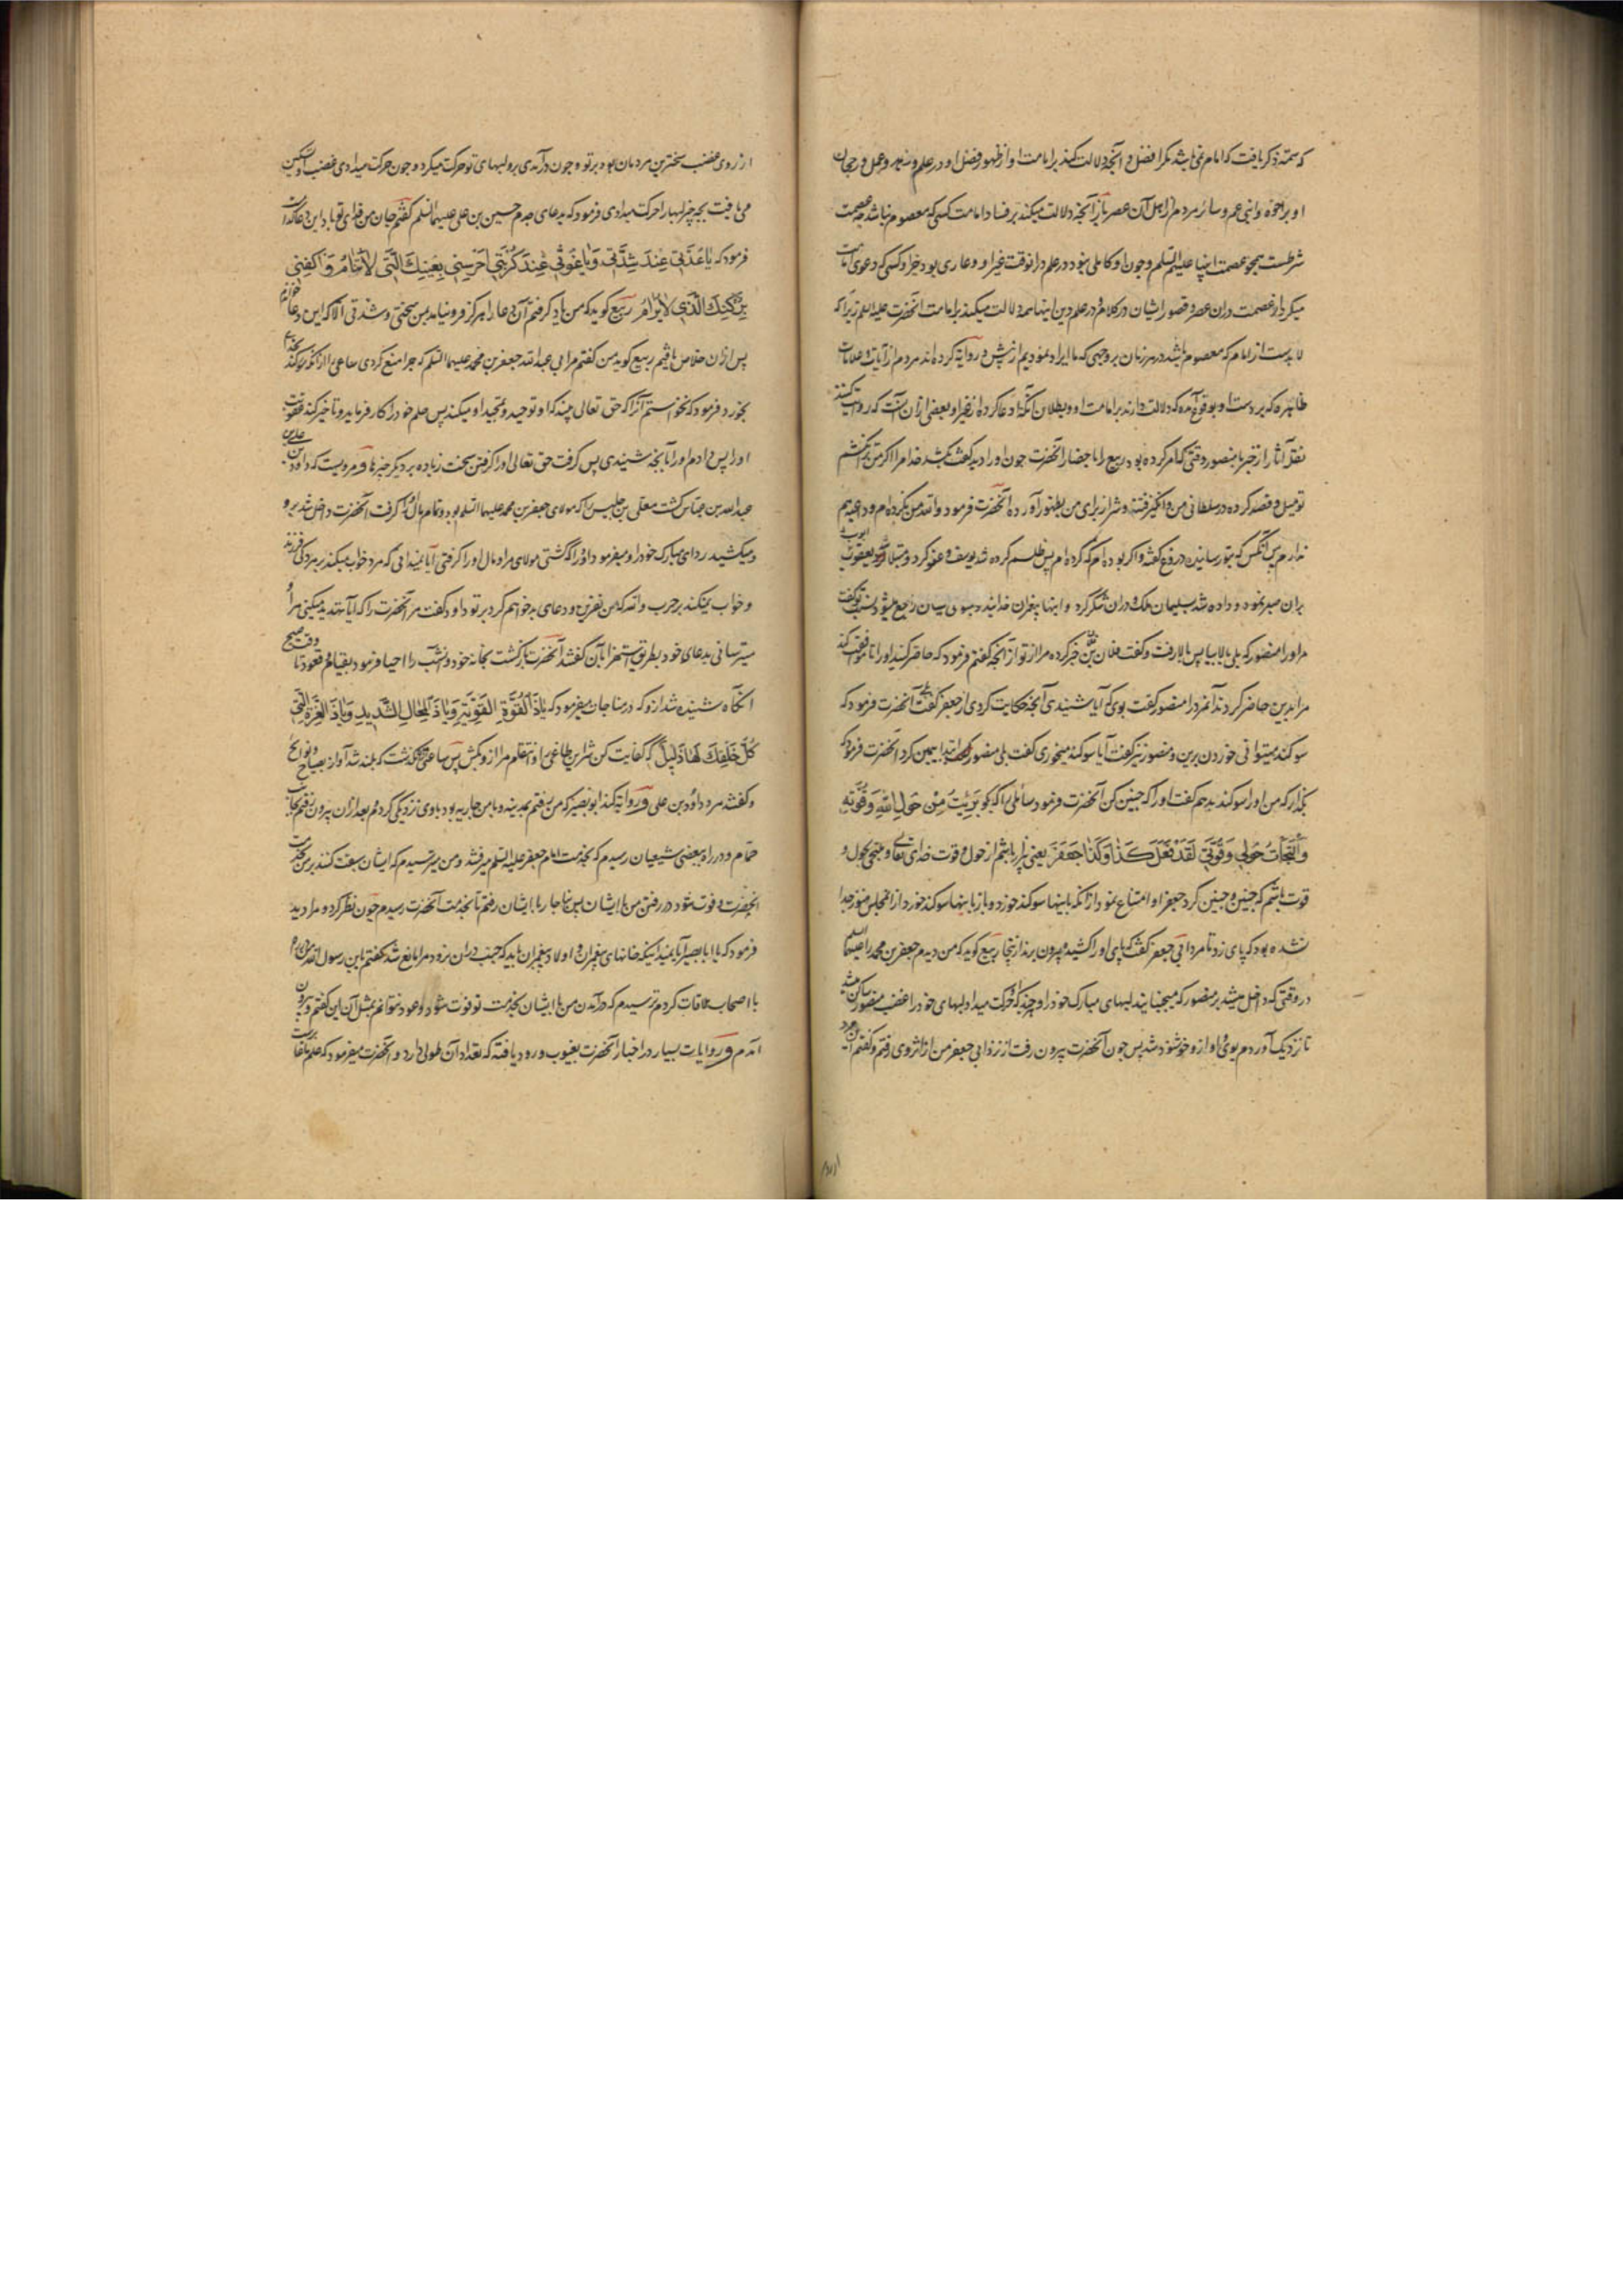 که سمت ذکر یافت که امام نمی باشد مگر افضل و آنچه دلالت کند بر امامت او از ظهور فضل او در علم و زهد و عمل و رجحان
او بر اخوه و بنی عم و سائر مردم از اهل آن عصر باز آنچه دلالت میکند بر فساد امامت کسی که معصوم نباشد چه عصمت
شرطست همچو عصمت انبیا علیهم السلم و چون او کاملی نبود در علم در آنوقت غیر او و عاری بودن جز او کسی که دعوی امامت
میکرد از عصمت در آن عصر و قصور ایشان در کلام در علم دین اینها همه دلالت میکند بر امامت آنحضرت علیه السلم زیرا که
لابدست از امام که معصوم باشد در هر زمان بر وجهی که ما ایراد نمودیم از پیش و روایة کرده اند مردم از آیات و علامات
ظاهره که بر دست او بوقوع آمده که دلالت دارند بر امامت او و بطلان آنکه ادعا کرده از غیر او بعضی از آن آنست که روایت کنند
نقل آثار از خبر با منصور وقتی که امر کرده بود ربیع را باحضار آنحضرت چون او را دید گفت بکشد خدا مرا اگر من ترا نکشم
تو میل و قصد کرده در سلطانی من و انگیز فتنه و شر از برای من بظهور آورده آنحضرت فرمود والله من نکرده ام و داعیه هم
ندارم پس آنکس که بتو رسانیده دروغ گفته و اگر بوده ام که کرده ام پس ظلم کرده شد یوسف و عفو کرد و مبتلا شد ایوب
بران صبر نمود و داده شد سلیمان ملک و در ان شکر کرد و اینها پیغمبران خدایند و بسوی ایشان راجع میشود نسب تو گفت
مر او را منصور که بلی بالا بیا پس بالا رفت و گفت فلان بن فلان خبر کرده مرا از تو از آنچه گفتم فرمود که حاضر کنید او را تا موافقت کند
مرا بدین حاضر کردند آنمرد را منصور گفت بوی که آیا شنیدی آنچه حکایت کردی از جعفر گفت بلی آنحضرت فرمود که
سوکند میتوانی خوردن برین و منصور نیز گفت آیا سوکند میخوری گفت بلی منصور ابتدا بیمین کرد آنحضرت فرمود که
بگذار که من او را سوکند بدهم گفت او را که چنین کن آنحضرت فرمود سائلی را که بگو بَرِئتُ مِنْ حَولِ اللهِ وَقُوَّتِهِ
وَالْتَجَأتُ حَولِی وَقُوَّتِی لَقَدْ فَعَلَ کَذَا وَکَذَا جَعفَرَ یعنی بری باشم از حول و قوت خدای تعالی و ملتجی بحول و
قوت باشم که چنین و چنین کرد جعفر او امتناع نمود از آنکه باینها سوکند خورد و باز باینها سوکند خورد از آنمجلس هنوز جدا
نشده بود که پای زد تا مرد ابی جعفر گفت که پای او را کشید و بیرون برند از اینجا ربیع گوید که من دیدم جعفر بن محمد را علیهما السلم
در وقتی که داخل میشد بر منصور که میجنبانید لبهای مبارک خود را و چندانکه حرکت میداد لبهای خود را غضب منصور ساکن میشد
تا نزدیک آوردم بوی و او ازو خوشنود شد پس چون آنحضرت بیرون رفت از نزد ابی جعفر من از اثر وی رفتم و گفتم این مرد
از روی
از روی غضب سختترین مردمان بود بر تو و چون در آمدی برو لبهای تو حرکت میکرد و چون حرکت میدادی غضب او تسکین
می یافت بچه چیز لبها را حرکت میدادی فرمود که بدعای جدم حسین بن علی علیهما السلم گفتم جان من فدای تو باد این دعا کدام است
فرمود که یَا عُدَّتِی عِندَ شِدَّتِی وَیَا غَوثِی عِندَ کُرْبَتِی اُحْرُسنِی بِعَینِکَ الَّتِی لاَ تَنَامُ وَاکْنِفْنِی
بِرُکْنِکَ الَّذِی لاَ یُرَامُ ربیع گوید که من یاد گرفتم آن دعا را هرگز فرو نیامد بمن سختی و شدتی الا که این دعا خواندم
پس از ان خلاص یافتم ربیع گوید من گفتم مر ابی عبد الله جعفر بن محمد علیهما السلم که چرا منع کردی ساعی را از آنکه سوکند بخدا
بخورد فرمود که نخواستم آنرا که حق تعالی بیند که او توحید و تمجید او میکند پس حلم خود را کار فرماید و تاخیر کند عقوبت
او را پس دادم او را بآنچه شنیدی پس گرفت حق تعالی او را گرفتن سخت زیاده بر دیگر چیزها و مرویست که داود بن علی بن
عبد الله بن عباس کشت معلی بن خنیس را که مولای جعفر بن محمد علیهما السلم بود و تمام مال او را گرفت آنحضرت داخل شد برو
و میکشید ردای مبارک خود را و میفرمود داود را که کشتی مولای مرا و مال او را گرفتی آیا نمیدانی که مرد خواب میکند بر مردکی فرزند
و خواب نمیکند بر حرب والله که من نفرین و دعای بد خواهم کرد بر تو داود گفت مر آنحضرت را که آیا تهدید میکنی مرا و
میترسانی بدعای خود بطریق استهزا بآن گفتند آنحضرت بازگشت بخانه خود و آنشب را احیا فرمود بقیام و قعود تا وقت صبح
آنگاه شنیده شد ازو که در مناجات میفرمود که یَا ذَا القُوَّةِ القَوِیَّةِ وَیَا ذَا المِحَالِ الشَّدِیدِ وَیَا ذَا العِزَّةِ الَّتِی
کُلُّ خَلْقِکَ لَهَا ذَلِیلٌ که کفایت کن شر این طاغی را و انتقام مرا ازو بکش پس ساعتی نگذشت که بلند شد آواز بصیاح و نواح
و گفتند مرد داود بن علی و روایة کند ابو بصیر که من رفتم بمدینه و با من جاریه بود باوی نزدیکی کردم و بعد از ان بیرون رفتم بجانب
حمام و در راه ببعضی شیعیان رسیدم که بخدمت امام جعفر علیه السلم میرفتند و من میترسیدم که ایشان سبقت کنند بر من بخدمت
آنحضرت و فوت شود در رفتن من با ایشان پس بناچار با ایشان رفتم تا بخدمت آنحضرت رسیدم چون نظر کرد و مرا دید
فرمود که یا ابا بصیر آیا نمیدانی که خانهای پیغمبران و اولاد پیغمبران باید که جنب در ان نرود مرا مانع شد گفتم یا بن رسول الله من چون
با اصحاب ملاقات کردم ترسیدم که در آمدن من با ایشان بخدمت تو فوت شود و عود نتوانم بمثل آن این گفتم و بیرون
آمدم و روایات بسیار در اخبار آنحضرت بغیوب ورود یافته که تعداد آن طولی دارد و آنحضرت میفرمود که علم ما غابرست